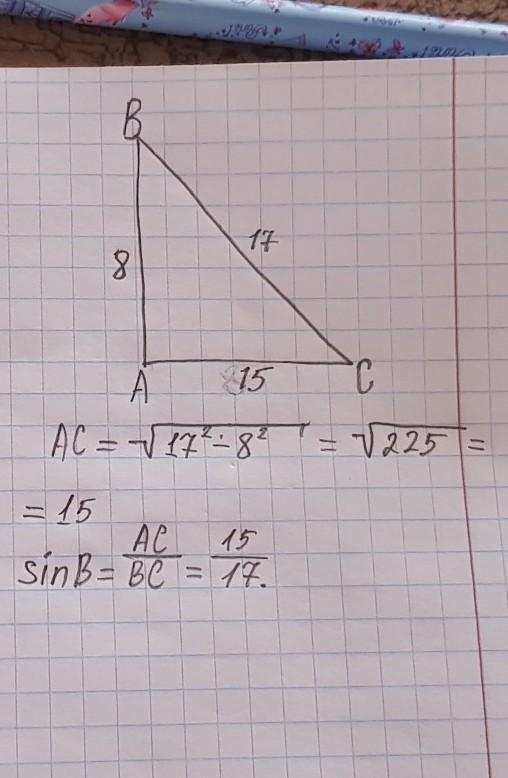 B
17
8
15
A
C
AC = √17² - 8² = √225 =
= 15
sinB = AC/BC = 15/17.